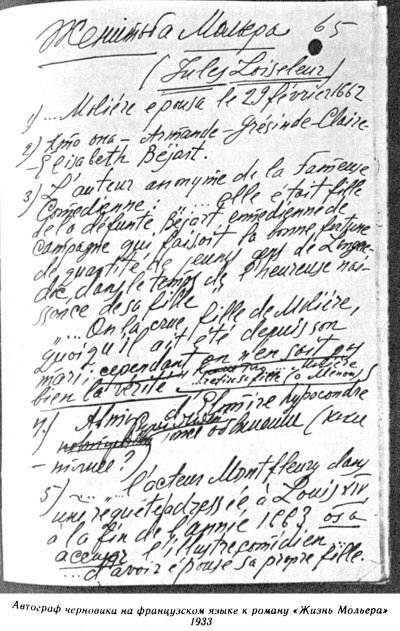 Женитьба Мольера 65
(Jules Loiseleur)
1) ... Molière épousa le 29 février 1662
2) Кто она – Armande-Grésinde-Claire-
Elisabeth Béjart.
3) – L'auteur anonyme de la Fameuse
Comédienne: "... elle était fille
de la défunte Béjart, comédienne de
campagne qui faisoit la bonne fortune
de quantité de jeunes gens de Langue-
doc, dans le temps de l'heureuse nais-
sance de sa fille
"... On la crue fille de Molière,
quoiqu'il ait été depuis son
mari: cependant on n'en sait pas
bien la vérité
4) – Elomire hypocondre
обвинение
5) – ... l'acteur Montfleury dans
une requête adressée à Louis XIV
à la fin de l'année 1663, osa
accuser l'illustre comédien ...
... d'avoir épousé sa propre fille.
Автограф черновика на французском языке к роману «Жизнь Мольера»
1933